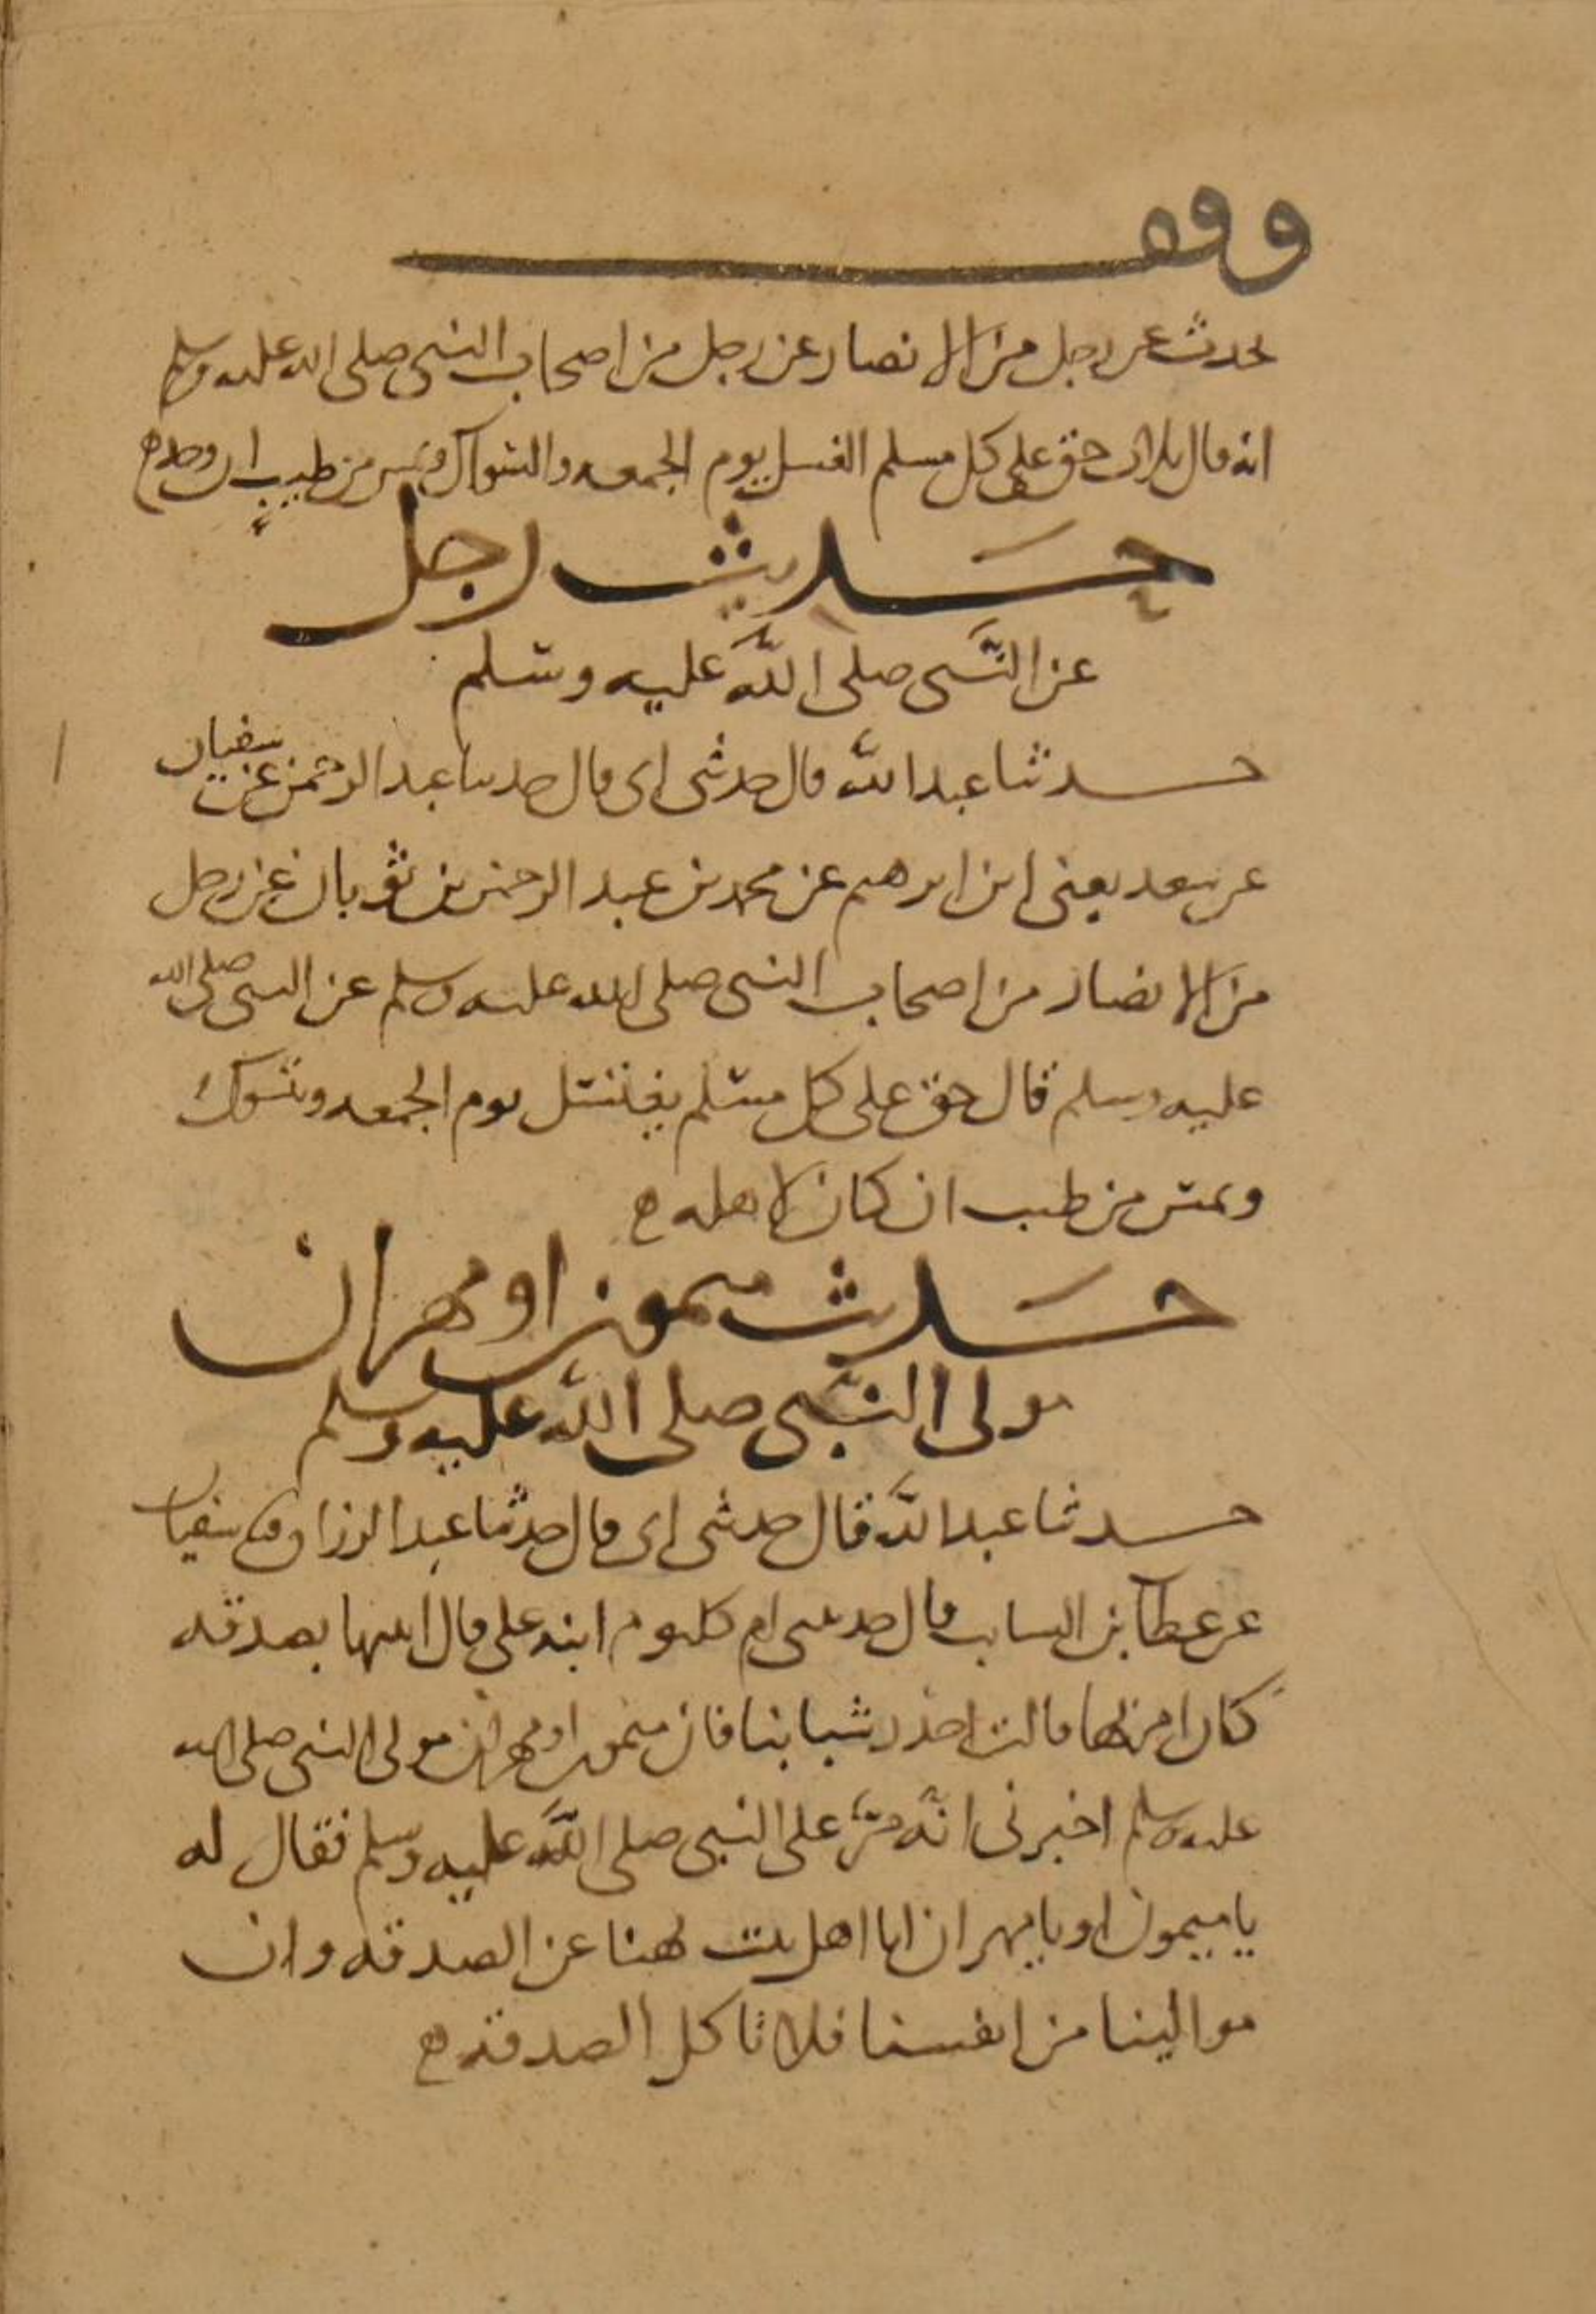 وقف
يحدث عن رجل من الانصار عن رجل من اصحاب النبي صلى الله عليه وسلم
انه قال ثلاث حق على كل مسلم الغسل يوم الجمعه والسواك ويمس من طيب ان وجد
حديث رجل
عن النبي صلى الله عليه وسلم
حدثنا عبد الله قال حدثني ابي قال حدثنا عبد الرحمن عن سفيان
عن سعد يعني ابن ابرهيم عن محمد بن عبد الرحمن بن ثوبان عن رجل
من الانصار من اصحاب النبي صلى الله عليه وسلم عن النبي صلى الله
عليه وسلم قال حق على كل مسلم يغتسل يوم الجمعه ويتسوك
ويمس من طيب ان كان لاهله
حديث ميمون او مهران
مولى النبي صلى الله عليه وسلم
حدثنا عبد الله قال حدثني ابي قال حدثنا عبد الرزاق سفيان
عن عطا بن السايب قال حدثتني ام كلثوم ابنه علي قال اتيتها بصدقه
كان امر بها قالت احذر شبابنا فان ميمون او مهران مولى النبي صلى الله
عليه وسلم اخبرني انه مر على النبي صلى الله عليه وسلم فقال له
يا ميمون او يا مهران انا اهل بيت نهينا عن الصدقه وان
موالينا من انفسنا فلا تاكل الصدقه